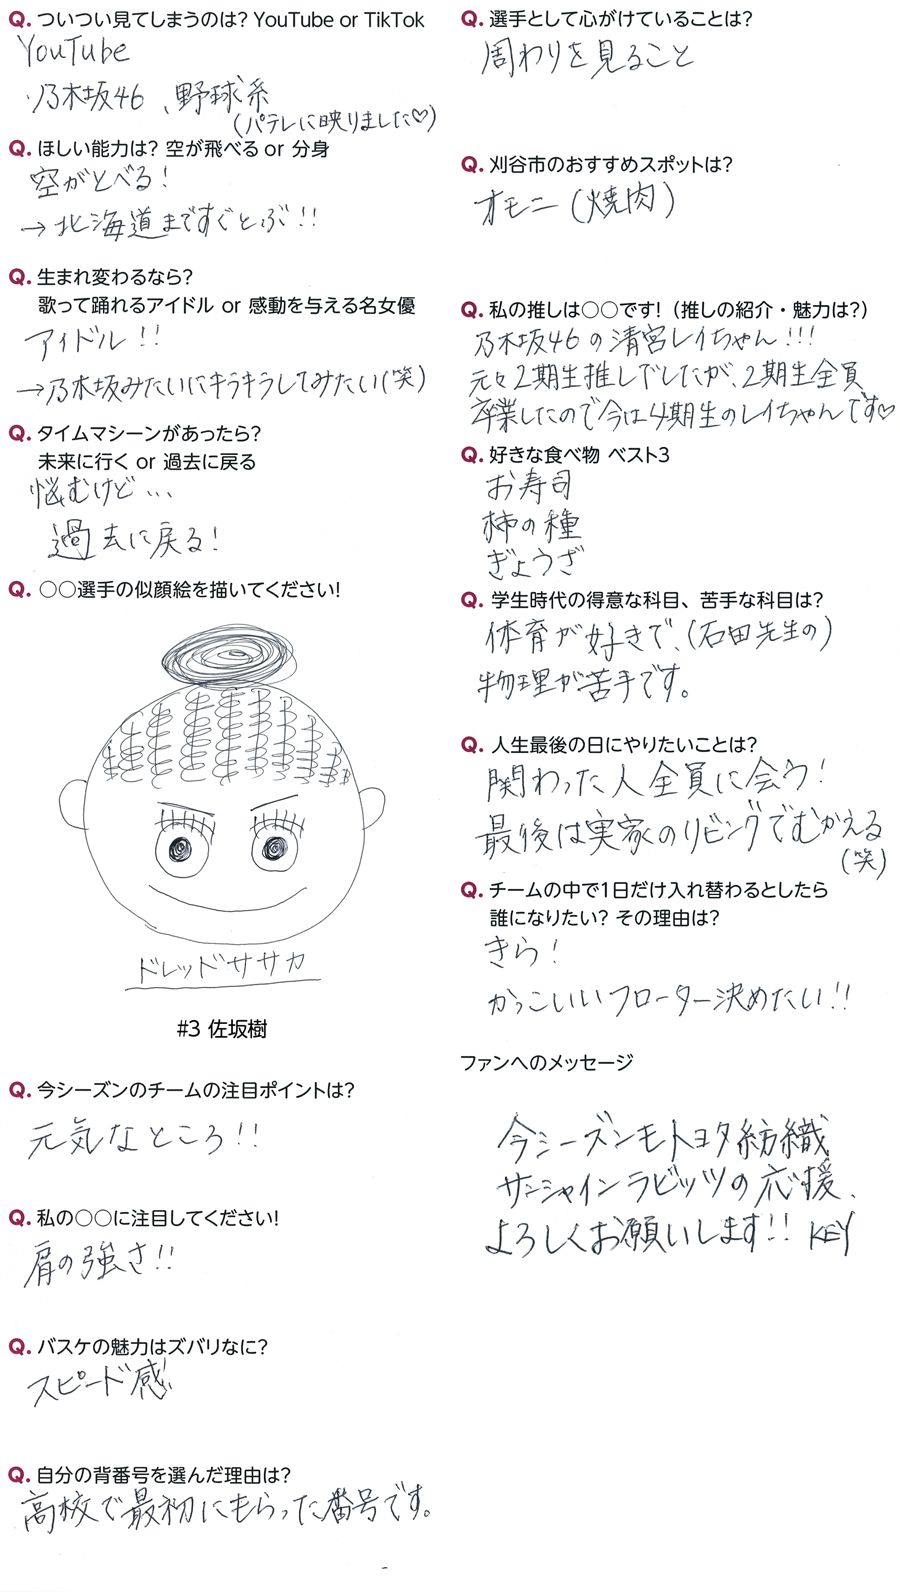 Q. ついつい見てしまうのは? YouTube or TikTok
YouTube
乃木坂46、野球系
(パテレに映りました♡)
Q. ほしい能力は? 空が飛べる or 分身
空がとべる!
→北海道まですぐとぶ!!
Q. 生まれ変わるなら?
歌って踊れるアイドル or 感動を与える名女優
アイドル!!
→乃木坂みたいにキラキラしてみたい(笑)
Q. タイムマシーンがあったら?
未来に行く or 過去に戻る
悩むけど…
過去に戻る!
Q. ○○選手の似顔絵を描いてください!
ドレッドササカ
#3 佐坂樹
Q. 今シーズンのチームの注目ポイントは?
元気なところ!!
Q. 私の○○に注目してください!
肩の強さ!!
Q. バスケの魅力はズバリなに?
スピード感
Q. 自分の背番号を選んだ理由は?
高校で最初にもらった番号です。
Q. 選手として心がけていることは?
周わりを見ること
Q. 刈谷市のおすすめスポットは?
オモニ(焼肉)
Q. 私の推しは○○です! (推しの紹介・魅力は?)
乃木坂46の清宮レイちゃん!!!
元々2期生推しでしたが、2期生全員
卒業したので今は4期生のレイちゃんです♡
Q. 好きな食べ物 ベスト3
お寿司
柿の種
ぎょうざ
Q. 学生時代の得意な科目、苦手な科目は?
体育が好きで、(石田先生の)
物理が苦手です。
Q. 人生最後の日にやりたいことは?
関わった人全員に会う!
最後は実家のリビングでむかえる
(笑)
Q. チームの中で1日だけ入れ替わるとしたら
誰になりたい? その理由は?
きら!
かっこいいフローター決めたい!!
ファンへのメッセージ
今シーズンもトヨタ紡織
サンシャインラビッツの応援、
よろしくお願いします!! KEY